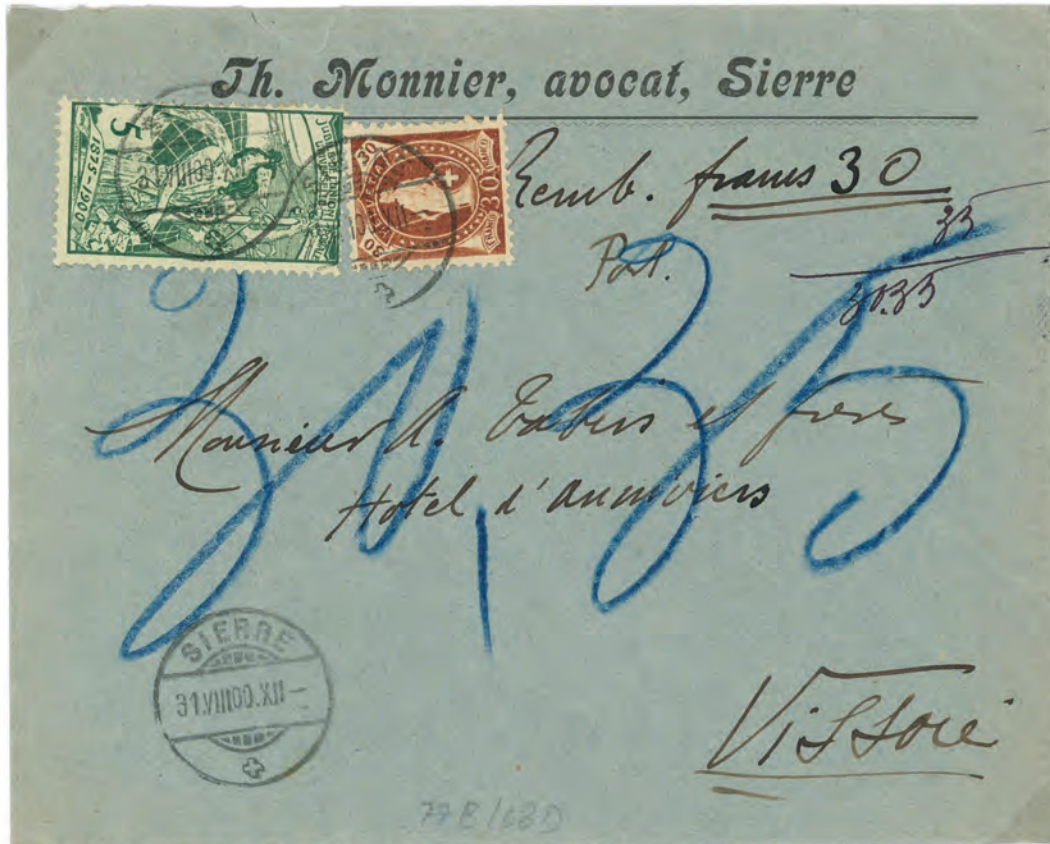 Th. Monnier, avocat, Sierre
5
1875-1900
30
30
FRANCO
FRANCO
HELVETIA
31.VIII00.XII
Remb. francs 30
Port. 35
30.35
30,35
Monsieur A. et frères
Hotel d'anniviers
Vissoie
SIERRE
31.VIII00.XII–
77B/68D